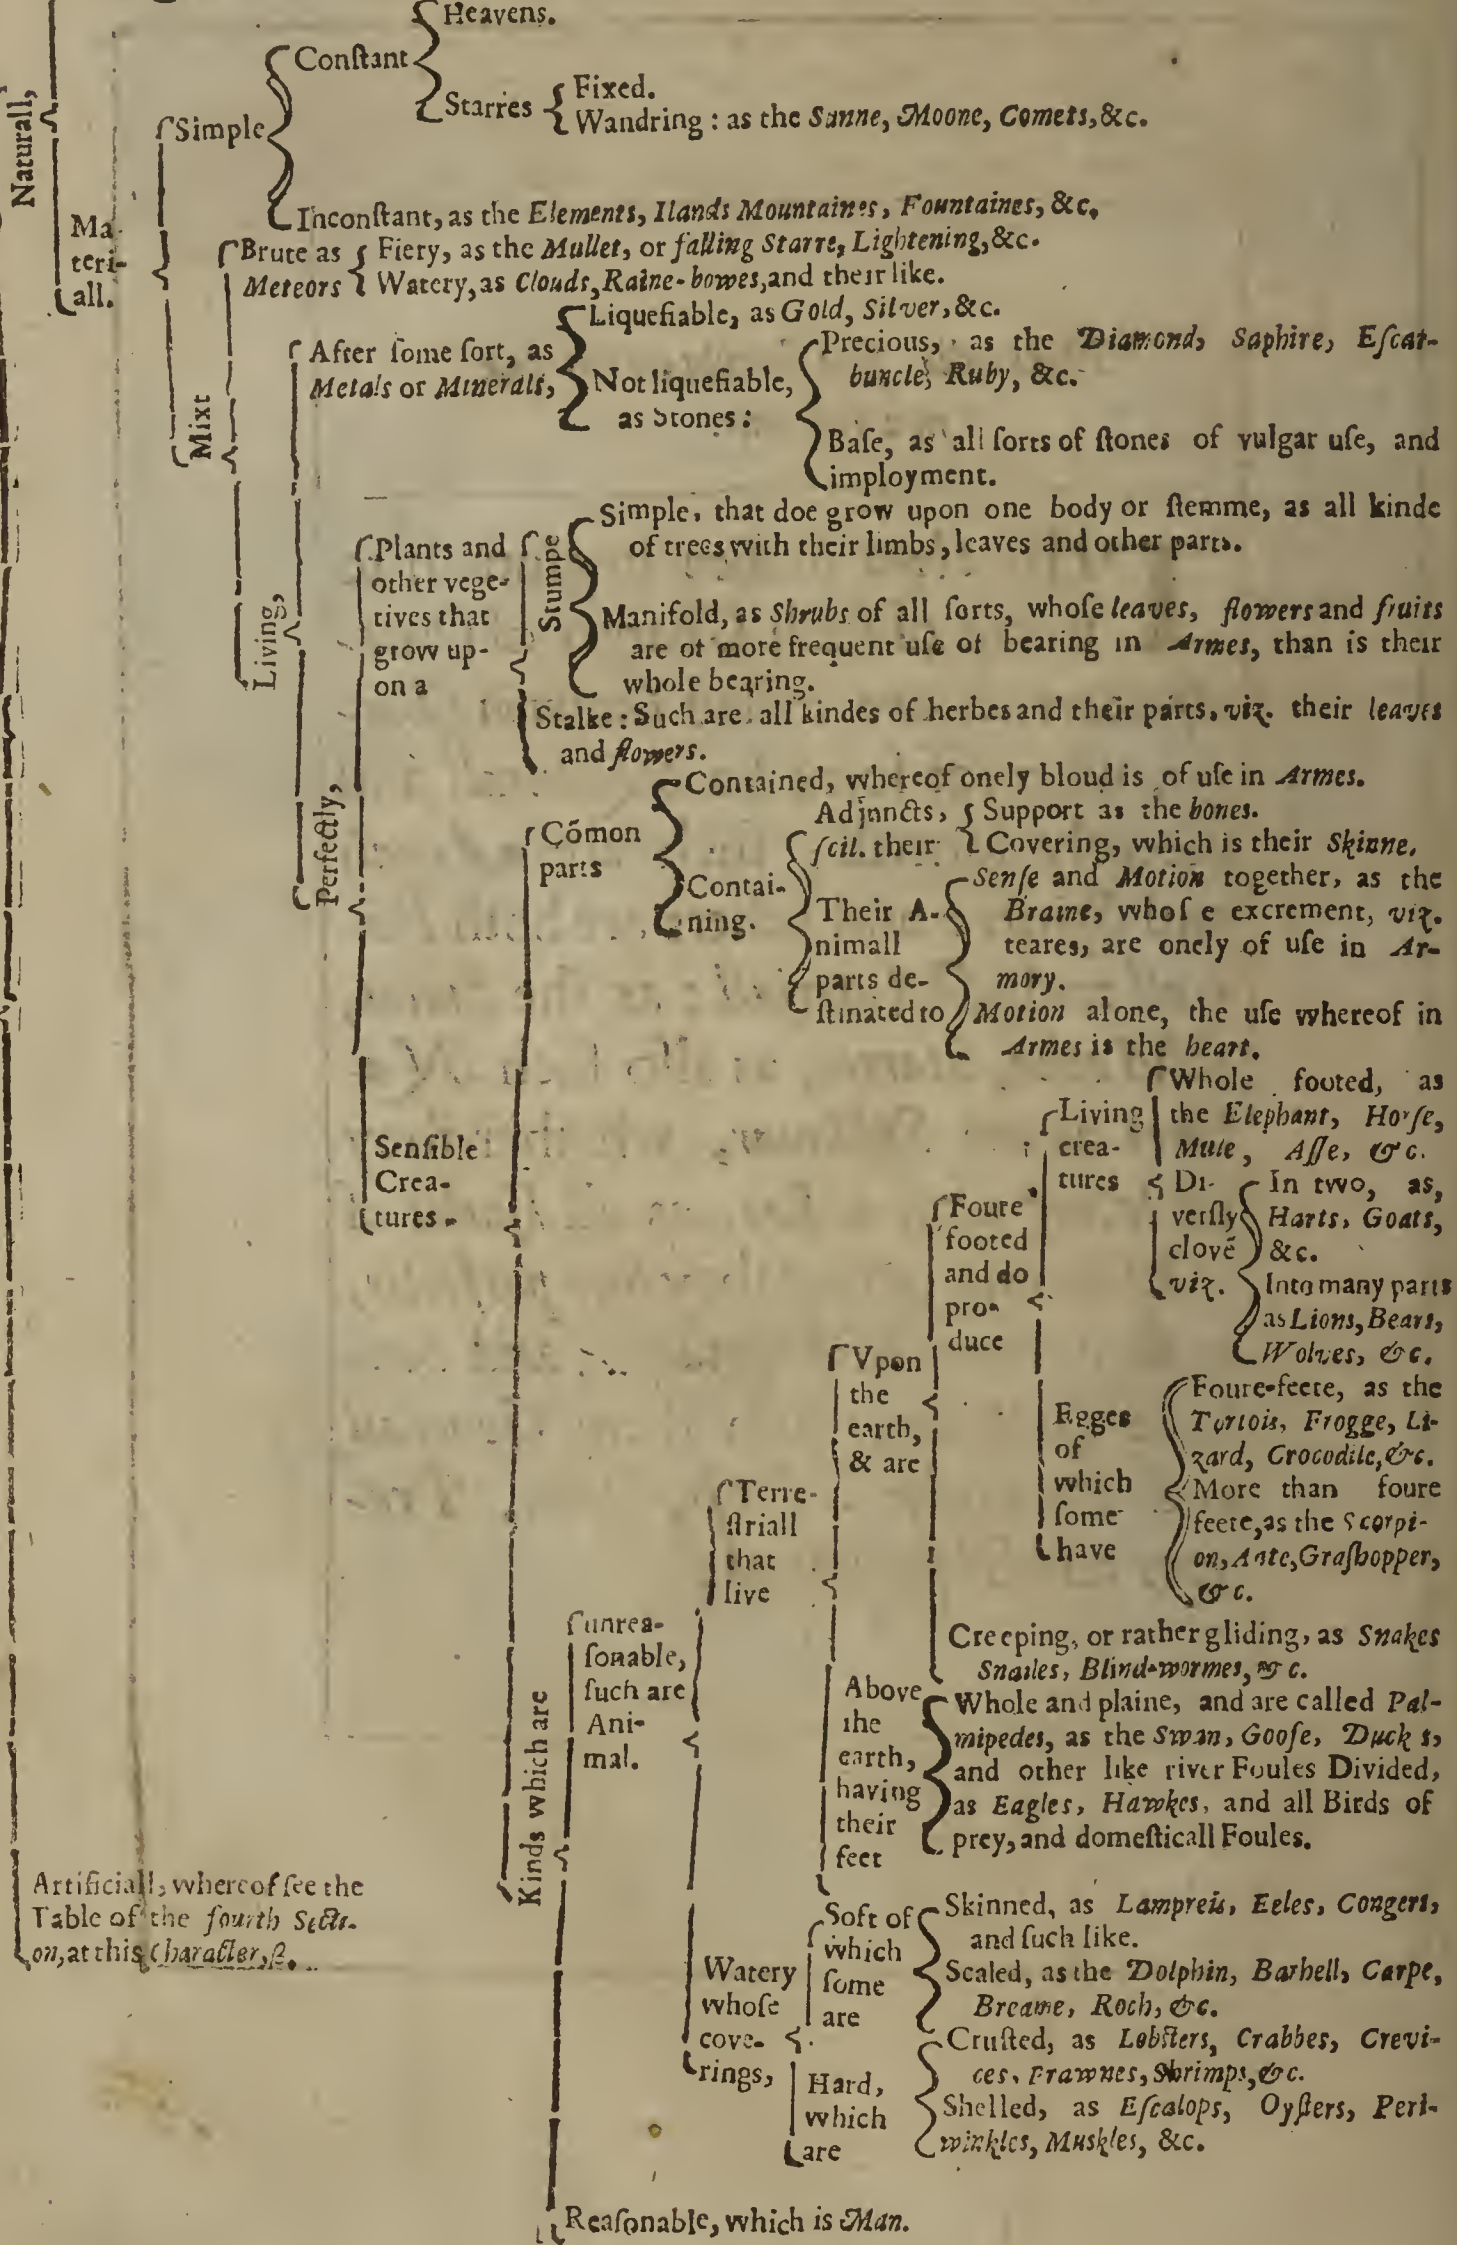 Heavens.
Conſtant
Starres
Fixed.
Wandring : as the Sunne, Moone, Comets, &c.
Simple
Naturall,
Inconſtant, as the Elements, Ilands Mountaines, Fountaines, &c.
Ma-
teri-
all.
Brute as
Meteors
Fiery, as the Mullet, or falling Starre, Lightening, &c.
Watery, as Clouds, Raine-bowes, and their like.
Liquefiable, as Gold, Silver, &c.
After ſome ſort, as
Metals or Minerals,
Not liquefiable,
as Stones :
Precious, as the Diamond, Saphire, Eſcar-
buncle, Ruby, &c.
Baſe, as all ſorts of ſtones of vulgar uſe, and
imployment.
Mixt
Living,
Plants and
other vege-
tives that
grow up-
on a
Stumpe
Simple, that doe grow upon one body or ſtemme, as all kinde
of trees with their limbs, leaves and other parts.
Manifold, as Shrubs of all ſorts, whoſe leaves, flowers and fruits
are of more frequent uſe of bearing in Armes, than is their
whole bearing.
Stalke : Such are all kindes of herbes and their parts, viz. their leaves
and flowers.
Perfectly,
Cōmon
parts
Contained, whereof onely bloud is of uſe in Armes.
Contai-
ning.
Adjuncts,
ſcil. their
Support as the bones.
Covering, which is their Skinne.
Their A-
nimall
parts de-
ſtinated to
Senſe and Motion together, as the
Braine, whoſe excrement, viz.
teares, are onely of uſe in Ar-
mory.
Motion alone, the uſe whereof in
Armes is the heart.
Senſible
Crea-
tures
Kinds which are
unrea-
ſonable,
ſuch are
Ani-
mal.
Terre-
ſtriall
that
live
Vpon
the
earth,
& are
Foure
footed
and do
pro-
duce
Living
crea-
tures
Whole footed, as
the Elephant, Horſe,
Mule, Aſſe, &c.
Di-
verſly
clovē
viz.
In two, as,
Harts, Goats,
&c.
Into many parts
as Lions, Bears,
Wolves, &c.
Egges
of
which
ſome
have
Foure-feete, as the
Tortois, Frogge, Li-
zard, Crocodile, &c.
More than foure
feete, as the Scorpi-
on, Ante, Graſhopper,
&c.
Creeping, or rather gliding, as Snakes
Snailes, Blind-wormes, &c.
Above
the
earth,
having
their
feet
Whole and plaine, and are called Pal-
mipedes, as the Swan, Gooſe, Ducks,
and other like river Foules Divided,
as Eagles, Hawkes, and all Birds of
prey, and domeſticall Foules.
Artificiall, whereof ſee the
Table of the fourth Secti-
on, at this Character, β.
Watery
whoſe
cove-
rings,
Soft of
which
ſome
are
Skinned, as Lampreis, Eeles, Congers,
and ſuch like.
Scaled, as the Dolphin, Barbell, Carpe,
Breame, Roch, &c.
Hard,
which
are
Cruſted, as Lobſters, Crabbes, Crevi-
ces, Prawnes, Shrimps, &c.
Shelled, as Eſcalops, Oyſters, Peri-
winkles, Muskles, &c.
Reaſonable, which is Man.